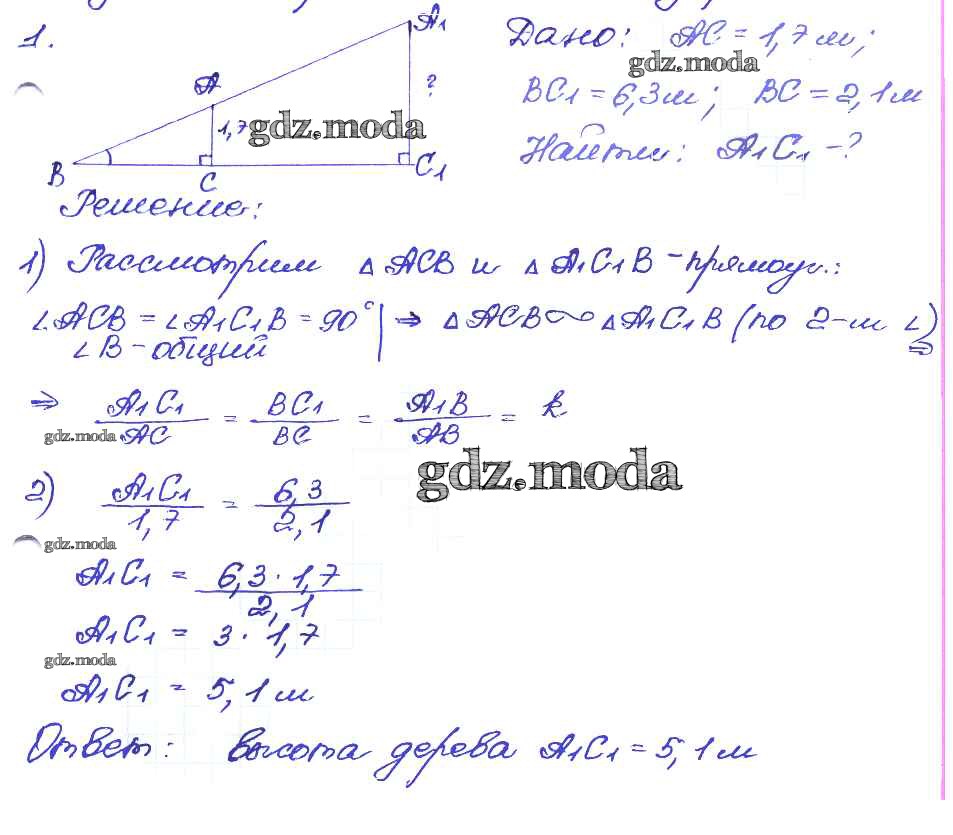 1.
A₁
A
?
1,7
B
C
C₁
Дано: AC = 1,7 м;
BC₁ = 6,3 м; BC = 2,1 м
Найти: A₁C₁ - ?
gdz.moda
gdz.moda
Решение:
1) Рассмотрим △ ACB и △ A₁C₁B - прямоуг.:
∠ACB = ∠A₁C₁B = 90° | ⇒ △ ACB ∾ △ A₁C₁B (по 2-м ∠) ⇒
∠B - общий
⇒ A₁C₁/AC = BC₁/BC = A₁B/AB = k
gdz.moda
gdz.moda
2) A₁C₁/1,7 = 6,3/2,1
gdz.moda
A₁C₁ = 6,3 · 1,7/2,1
A₁C₁ = 3 · 1,7
gdz.moda
A₁C₁ = 5,1 м
Ответ: высота дерева A₁C₁ = 5,1 м